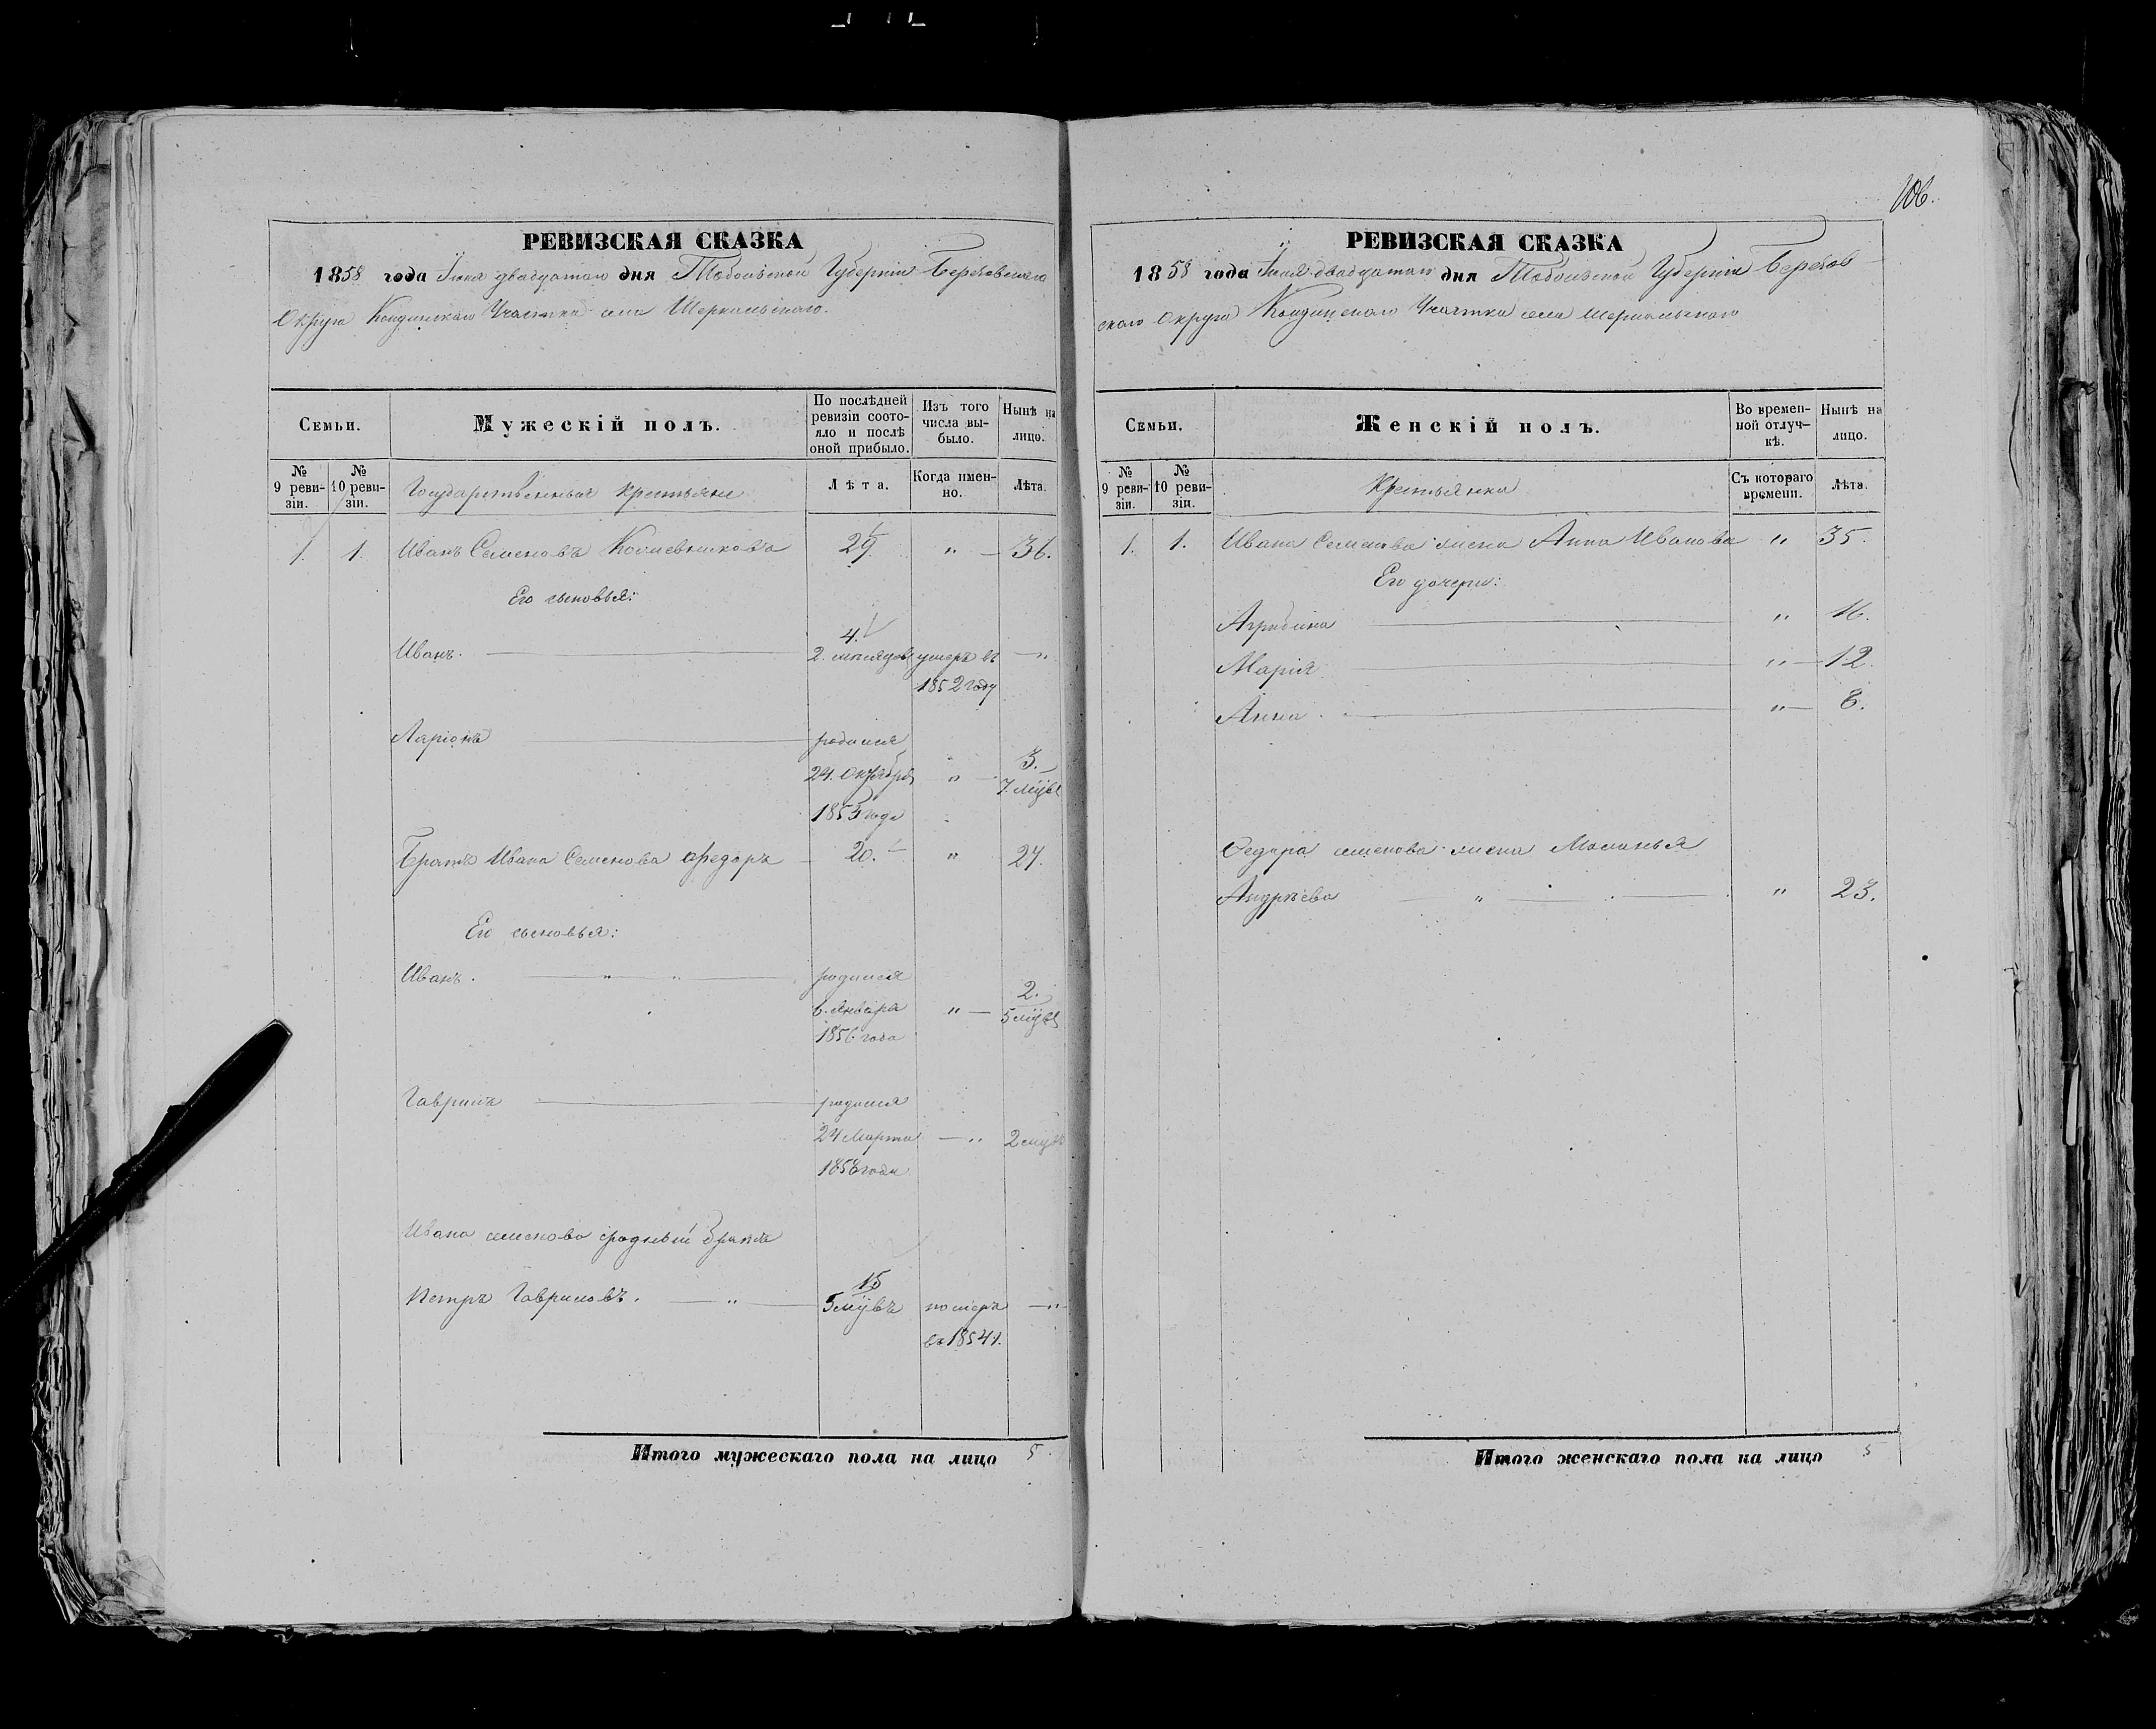 106.
РЕВИЗСКАЯ СКАЗКА
1858 года Іюня двадцатаго дня Тобольской Губерніи Березовскаго
Округа Кондинскаго Участка села Шеркальскаго.
Семьи.
Мужескій полъ.
По послѣдней ревизіи состояло и послѣ оной прибыло.
Изъ того числа выбыло.
Нынѣ на лицо.
№ 9 ревизіи.
№ 10 ревизіи.
Государственные крестьяне
Лѣта.
Когда именно.
Лѣта.
1. 1. Иванъ Семеновъ 29. " 36.
Его сыновья:
4.
Иванъ. 2. мѣсяцовъ умеръ въ "
1852 году
Ларіонъ родился
3.
24. Октября " 7. мцвъ
года
Братъ Ивана Семенова Федоръ 20. " 27.
Его сыновья:
Иванъ. " " родился
2.
6. Января " 5 мцвъ
1856 года
Гаврилъ родился
24 Марта " 2 мцвъ
1858 года
Ивана семенова сродный братъ
15
Петръ Гавриловъ. " 5 мцвъ померъ "
въ 1854 г.
Итого мужескаго пола на лицо 5
РЕВИЗСКАЯ СКАЗКА
1858 года Іюня двадцатаго дня Тобольской Губерніи Березов
скаго Округа Кондинскаго Участка села Шеркальскаго
Семьи.
Женскій полъ.
Во временной отлучкѣ.
Нынѣ на лицо.
№ 9 ревизіи.
№ 10 ревизіи.
Крестьянки
Съ котораго времени.
Лѣта.
1. 1. Ивана Семенова жена Анна Иванова " 35.
Его дочери:
Агрибина " 16.
Марія " 12.
Анна. " 8.
Федора семенова жена Маланья
Андрѣева " " 23.
Итого женскаго пола на лицо 5